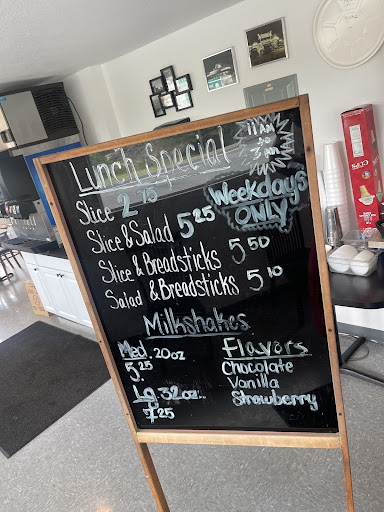 Lunch Special
11 AM
to
3 AM
Slice 2.75
Weekdays
ONLY
Slice & Salad 5.25
Slice & Breadsticks 5.50
Salad & Breadsticks 5.10
Milkshakes
Med. 20oz
5.25
Lg 32oz..
7.25
Flavors
Chocolate
Vanilla
Strawberry